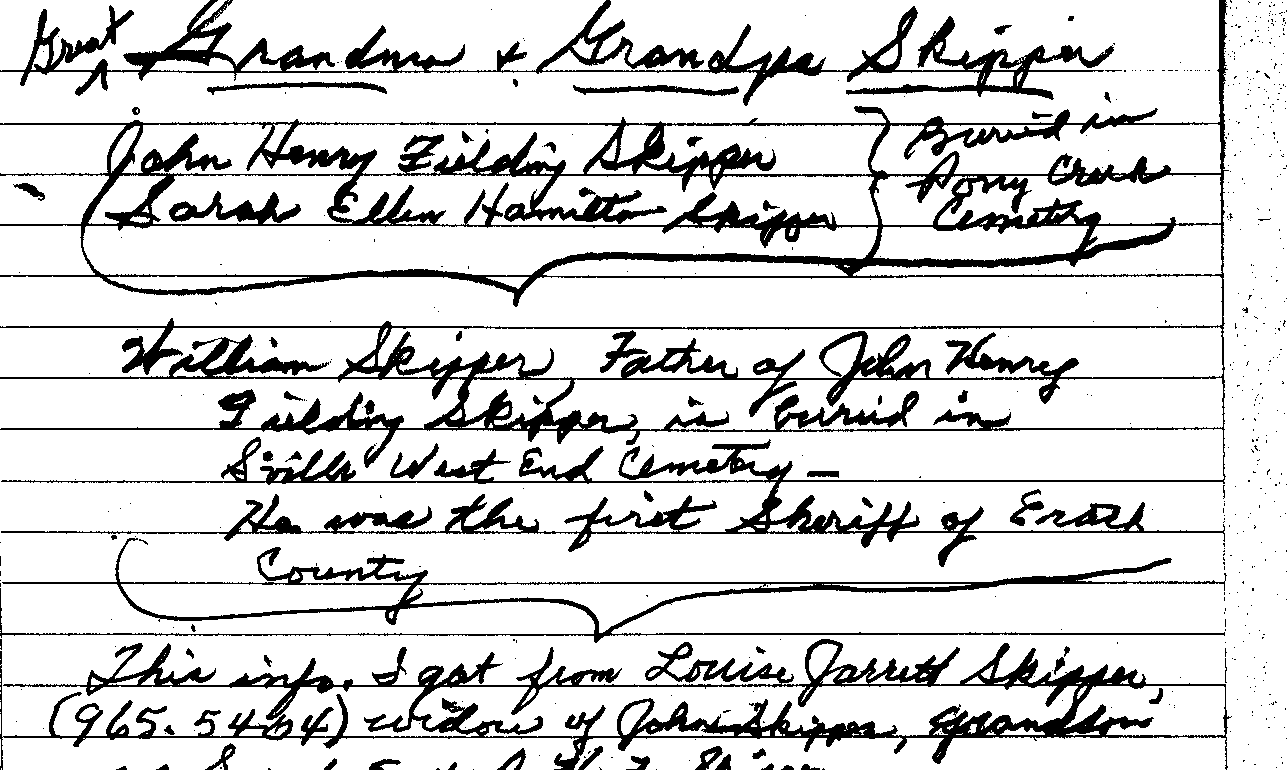 Great Grandma & Grandpa Skipper
John Henry Fielding Skipper
Sarah Ellen Hamilton Skipper
Buried in
Pony Creek
Cemetery
William Skipper, Father of John Henry
Fielding Skipper, is buried in
S'ville West End Cemetery –
He was the first Sheriff of Erath
County
This info. I got from Louise Jarrett Skipper,
(965-5464) widow of John Skipper, grandson